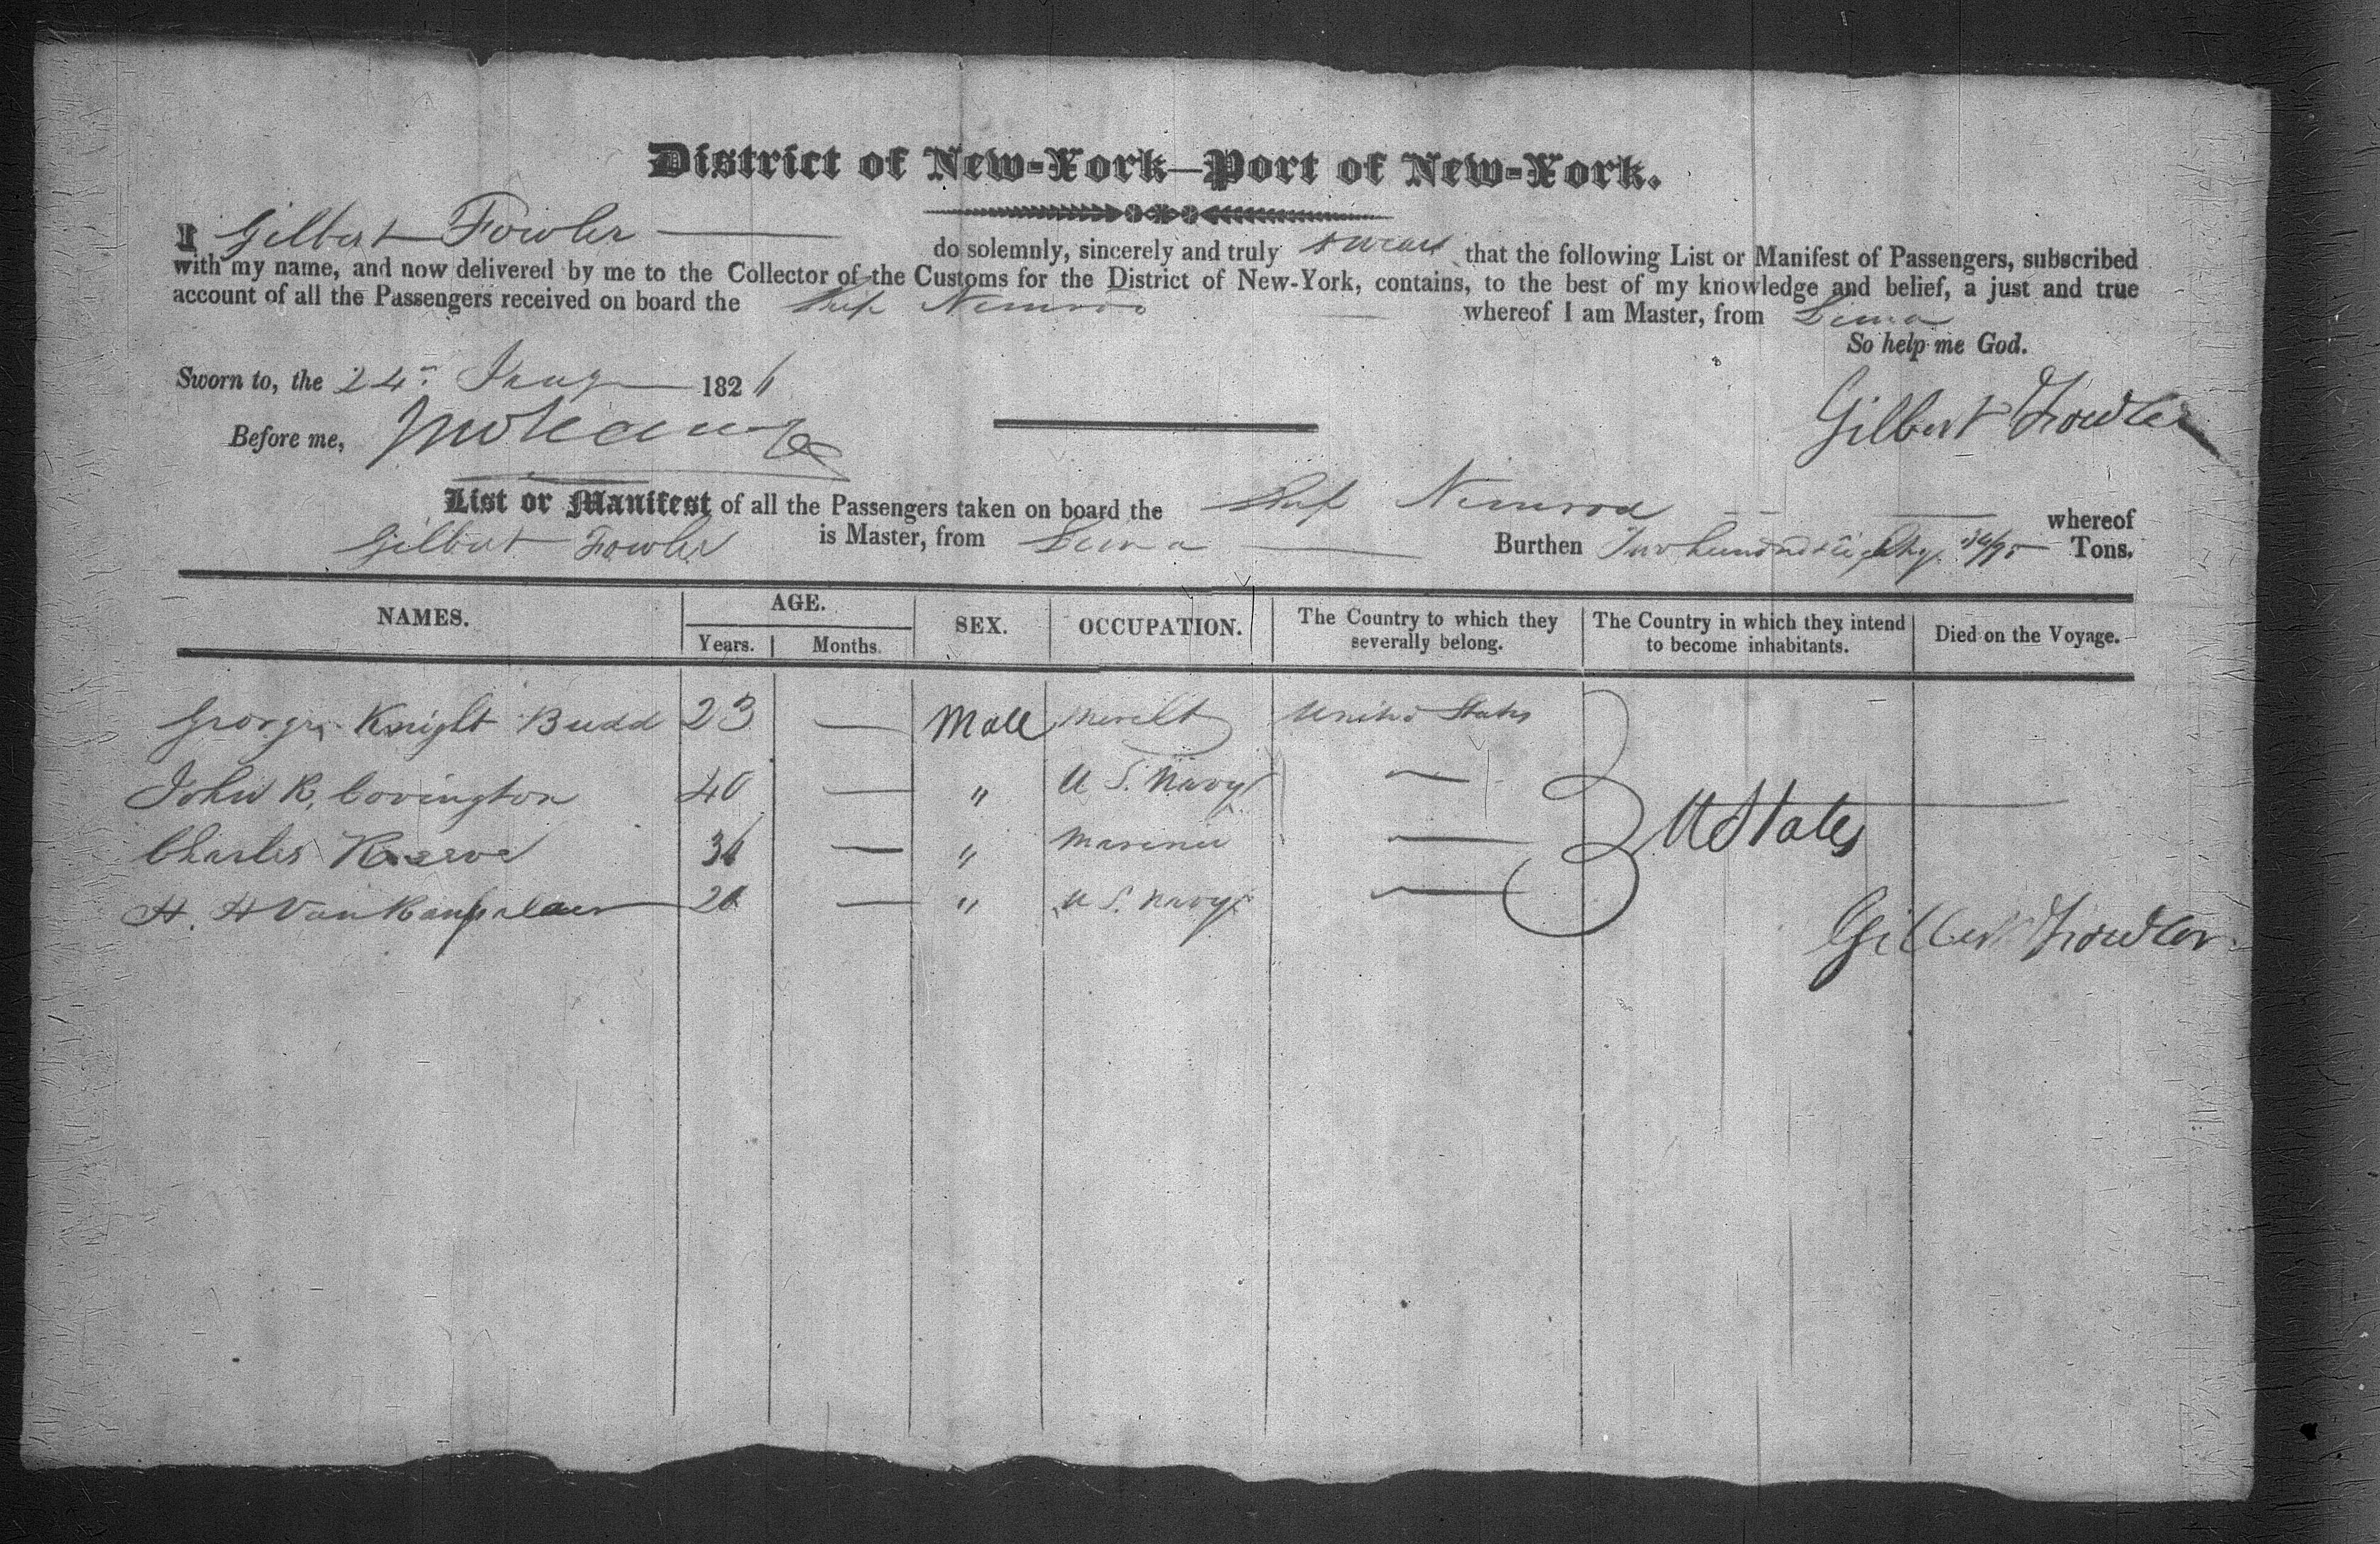 District of New-York—Port of New-York.
I Gilbert Fowler do solemnly, sincerely and truly swear that the following List or Manifest of Passengers, subscribed
with my name, and now delivered by me to the Collector of the Customs for the District of New-York, contains, to the best of my knowledge and belief, a just and true
account of all the Passengers received on board the Ship Nimrod whereof I am Master, from Lima
So help me God.
Sworn to, the 24th Jany 1826
Before me,
Gilbert Fowler
List or Manifest of all the Passengers taken on board the Ship Nimrod whereof
Gilbert Fowler is Master, from Lima Burthen Two hundred & eighty Tons.
NAMES. AGE. SEX. OCCUPATION. The Country to which they severally belong. The Country in which they intend to become inhabitants. Died on the Voyage.
Years. Months.
George Knight Budd 23 — Male United States
John R. Covington 40 — " U S. Navy —
Charles — " Mariner —
U States
H. H Van — " U S. Navy —
Gilbert Fowler